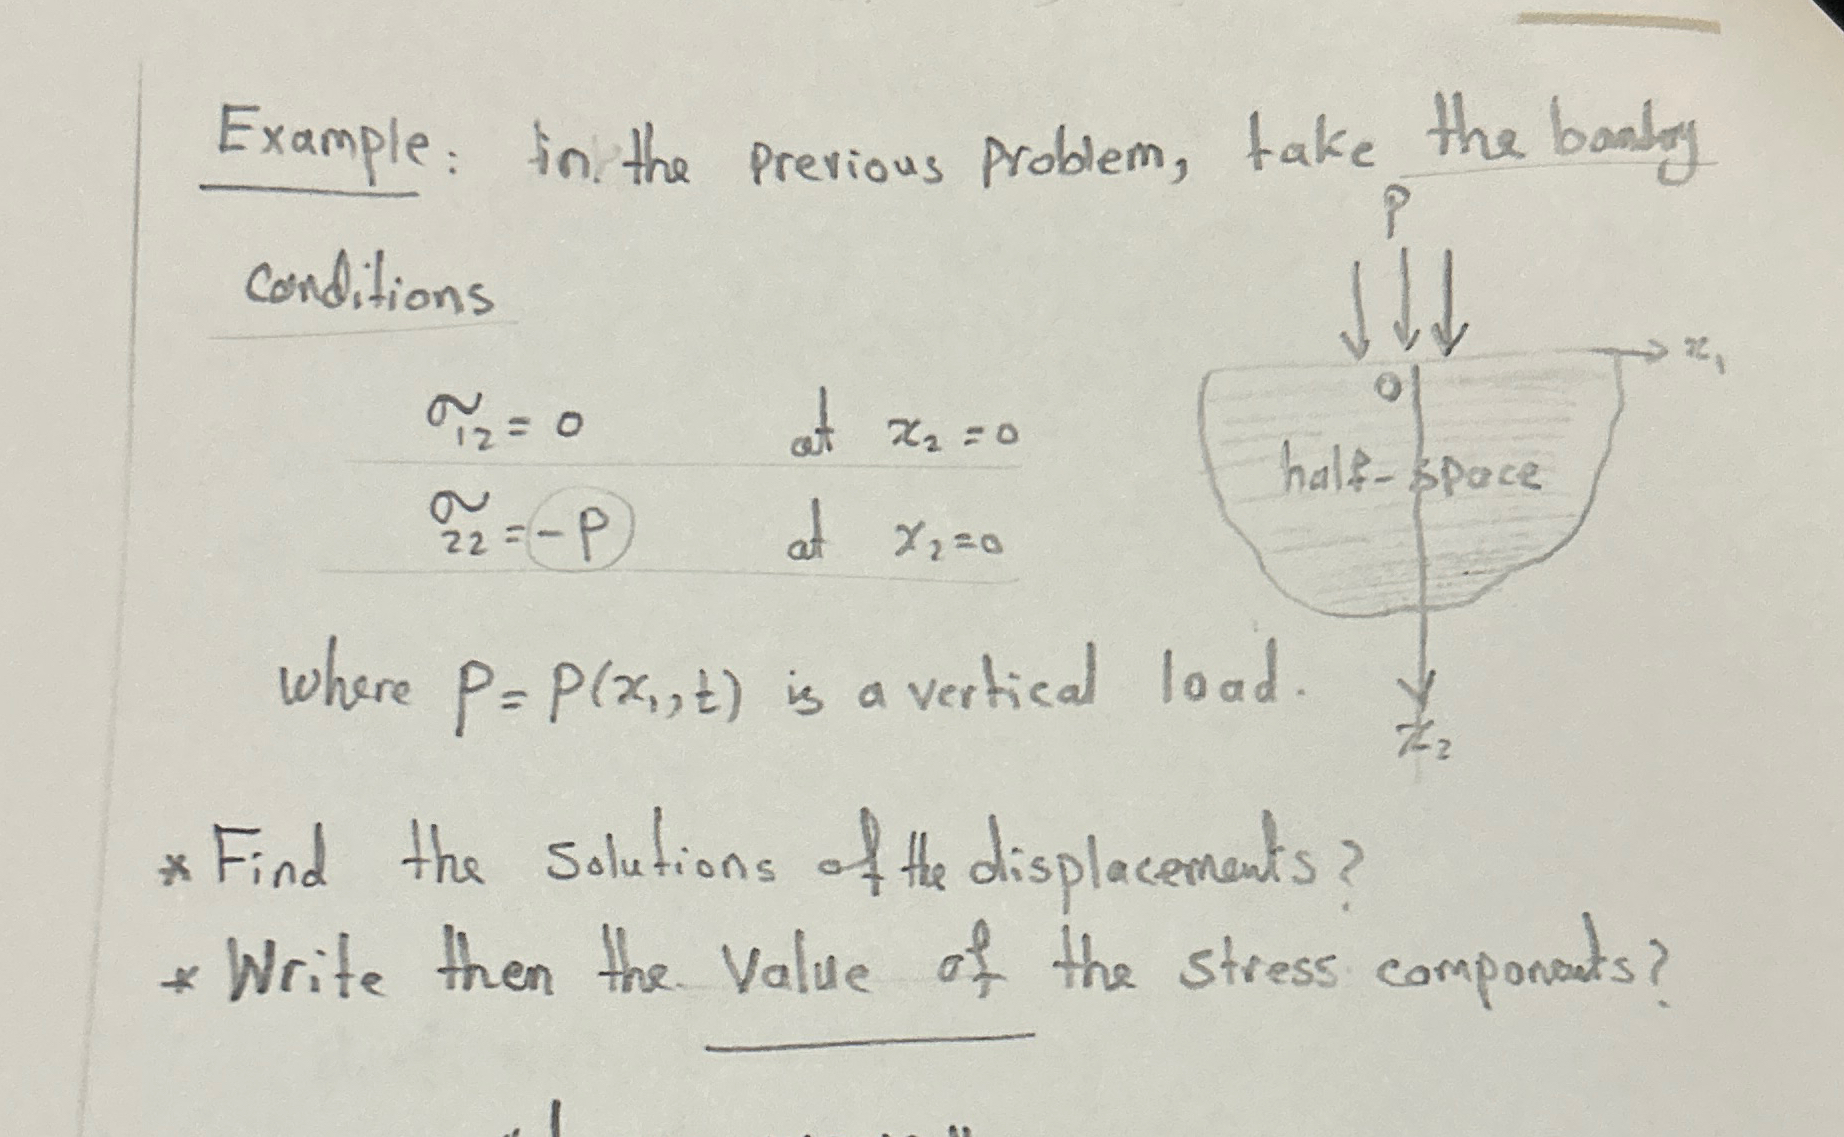 Example: in the previous problem, take the bandry
conditions
P
x₁
O
σ₁₂ = 0 at x₂ = 0
half-space
σ₂₂ = -P at x₂=0
where P = P(x₁,t) is a vertical load.
x₂
* Find the solutions of the displacements?
* Write then the value of the stress components?